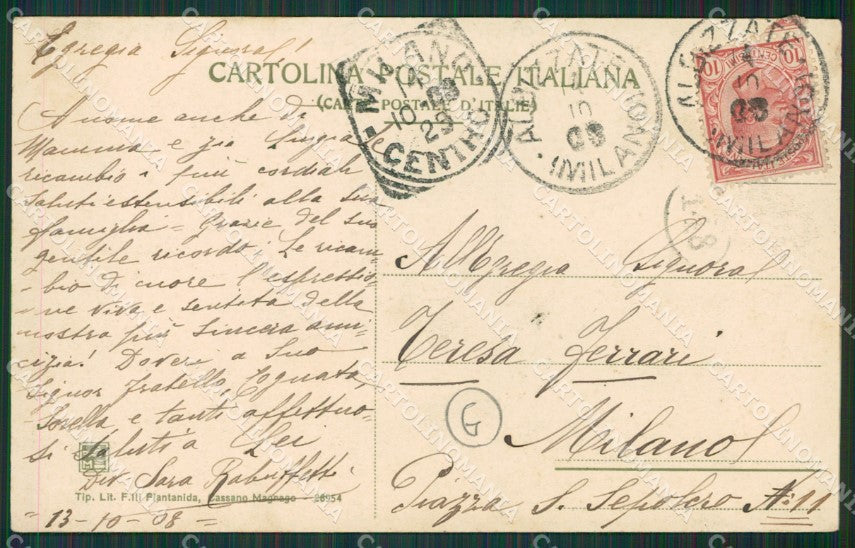 Egregia Signora!
CARTOLINA POSTALE ITALIANA
(CARTE POSTALE D'ITALIE)
A nome anche di
Mamma e zia
ricambio i più cordiali
saluti estensibili alla sua
famiglia - Grazie del suo
gentile ricordo; Le ricam-
bio di cuore l'espressio-
ne viva e sentita della
nostra più sincera ami-
cizia! Doveri a Suo
Signor fratello, Cognata,
Sorella e tanti affettuo-
si saluti a Lei
Sara Rabuffetti
Tip. Lit. F.lli Piantanida, Cassano Magnago - 26954
= 13-10-08 =
MILANO
10 08
CENTRO
ALBIZZATE
10
08
(MILANO)
ALBIZZATE
10
08
(MILANO)
10
10
All'Egregia Signora
Teresa Ferrari
G
Milano
Piazza S. Sepolcro N. 11
CARTOLINOMANIA